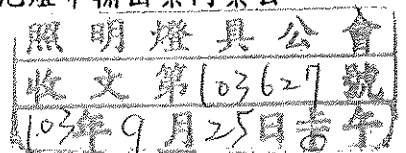 照明燈具公會
收文第103627號
103年9月25日 午